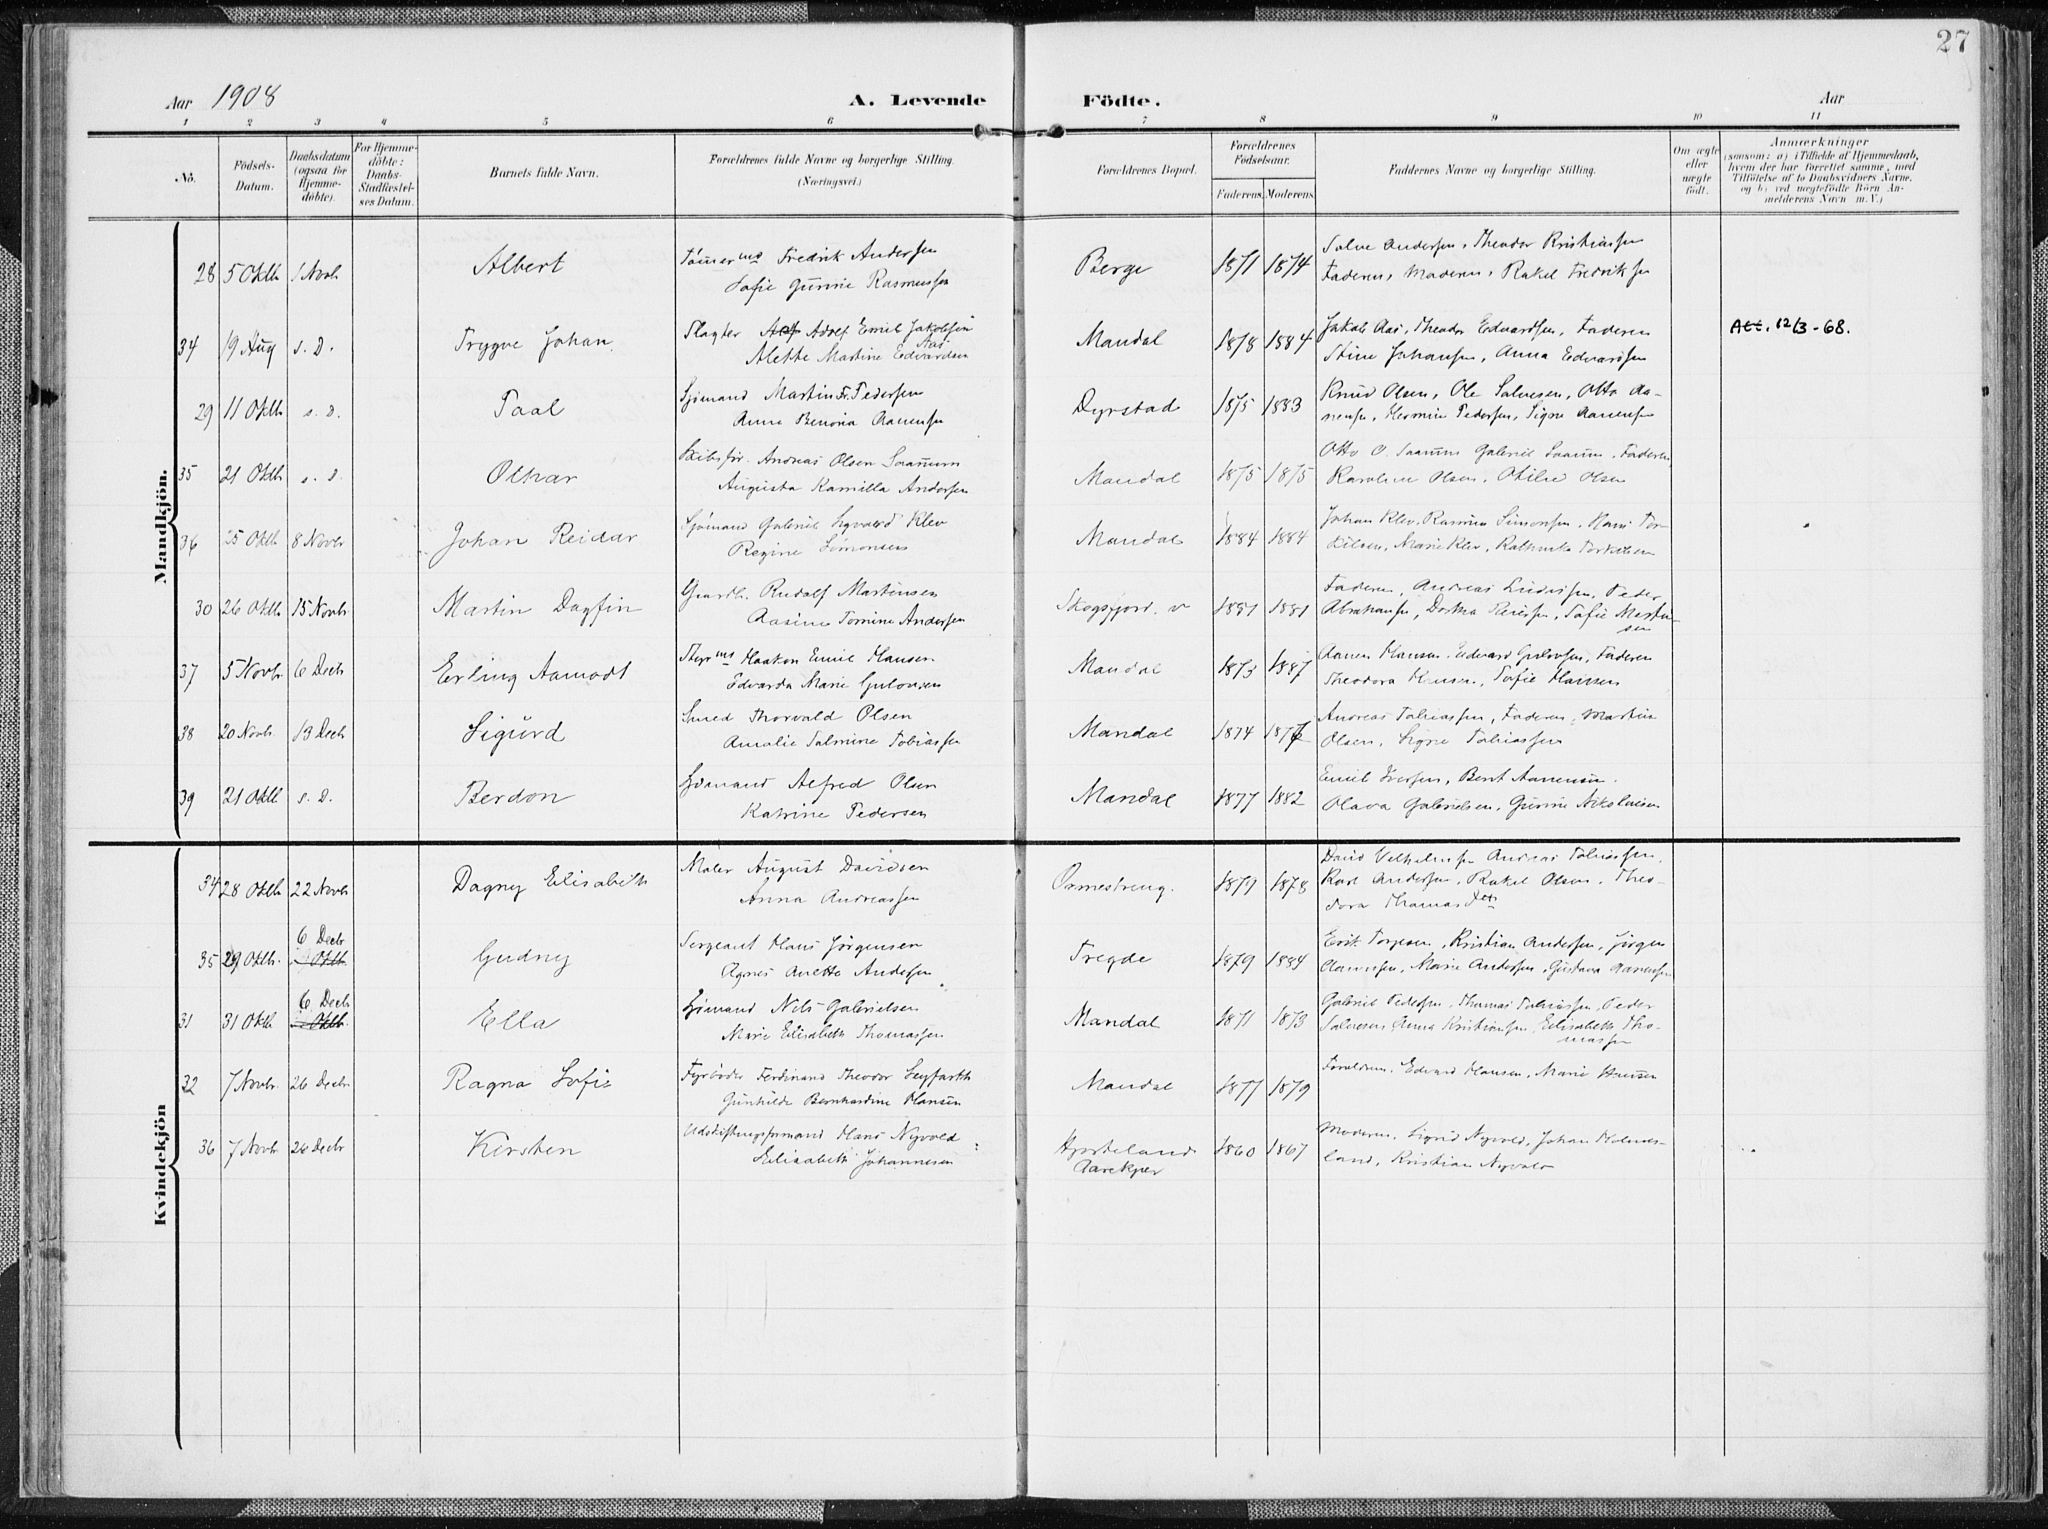 27
Aar 1908 A. Levende Födte. Aar
1 2 3 4 5 6 7 8 9 10 11
No.
Födsels-Datum.
Daabsdatum (ogsaa for Hjemme-döbte).
For Hjemme-döbte: Daabs-Stadfæstel-ses Datum.
Barnets fulde Navn.
Forældrenes fulde Navne og borgerlige Stilling.
(Næringsvei.)
Forældrenes Bopæl.
Forældrenes Födselsaar.
Faderens. Moderens.
Faddernes Navne og borgerlige Stilling.
Om ægte eller uægte født.
Anmærkninger
(saasom: a) i Tilfælde af Hjemmedaab,
hvem der har forrettet samme, med
Tilføielse af to Daabsvidners Navne,
og b) ved uægtefødte Börn An-
melderens Navn m. V.)
Mandkjön.
28 5 Oktb 1 Novb Albert Tömmermd Fredrik Andersen Berge 1871 1874 Salve Andersen, Theodor Kristiansen
Sofie Gunnie Rasmussen Faderen, Moderen, Rakel Fredriksen
34 19 Aug s. D. Trygve Johan Slagter Adolf Emil Jakobsen Aas Mandal 1878 1884 Jakob Aas, Theodor Edvardsen, Faderen Att. 12/3-68.
Alette Martine Edvardsen Stine Johansen, Anna Edvardsen
29 11 Oktb s. D. Paal Sjömand Martin Fr. Pedersen Dyrstad 1875 1883 Knud Olsen, Ole Salvesen, Otto Aa-
Anne Benoria Aanensen nensen, Hermine Pedersen, Signe Aanensen
35 21 Oktb s. D. Othar Skibsför. Andreas Olsen Saanum Mandal 1875 1875 Otto O. Saanum Gabriel Saanum, Faderen,
Augusta Kamilla Andersen Karoline Olsen, Otilie Olsen
36 25 Oktb 8 Novbr Johan Reidar Sjömand Gabriel Sigvald Klev Mandal 1884 1884 Johan Klev, Rasmus Simonsen, Hans Tor-
Regine Simonsen kilsen, Marie Klev, Torkilsen
30 26 Oktb 15 Novbr Martin Dagfin Gaardb. Rudolf Martinsen Skogsfjord. v 1881 1881 Faderen, Andreas Ludvigsen, Peder
Rasine Tomine Andersen Abrahamsen, Sofie Martin-
sen
37 5 Novbr 6 Decb Erling Aamodt Styrmd Haakon Emil Hansen Mandal 1873 1887 Aanen Hansen, Edvard Gulovsen, Faderen
Edvarda Marie Gulovsen Theodora Hansen, Sofie Hansen
38 20 Novb 13 Decb Sigurd Smed Thorvald Olsen Mandal 1874 Andreas Tobiassen, Faderen, Martin
Amalie Salmine Tobiassen Olsen, Signe Tobiassen
39 21 Oktb s. D. Berdon Sjömand Alfred Olsen Mandal 1877 1882 Emil Iversen, Bent Aanensen.
Katrine Pedersen Olava Gabrielsen, Gunnie Nikolaisen
Kvindekjön
34 28 Oktb 22 Novb Dagny Elisabeth Maler August Davidsen Ormestreng. 1878 David Vilhelmsen Andreas Tobiassen,
Anna Andreassen Karl Andersen, Rakel Olsen, Theo-
dora Thomasdtr
35 29 Oktb. 6 Decb Gudny Sergeant Hans Jörgensen Tregde 1879 1884 Erik Torjesen, Kristian Andersen, Jörgen
Agnes Anette Andersen Aanensen, Marie Andersen, Gustava Aanensen
31 31 Oktb 6 Decb Ella Sjömand Nils Gabrielsen Mandal 1871 1873 Gabriel Pedersen, Thomas Tobiassen, Peder
Marie Elisabeth Thomassen Salvesen, Anna Kristiansen, Elisabeth Tho-
massen
32 7 Novbr. 26 Decbr. Ragna Sofie Fyrböder Ferdinand Theodor Seyfarth Mandal 1877 1879 Forældrene, Edvard Hansen, Marie Hansen
Gunhilde Bernhardine Hansen
36 7 Novb 26 Decb Kirsten Udskiftningsformand Hans Nyvold Hjorteland 1860 1867 Moderen, Sigrid Nyvold, Johan Holmes-
Elisabeth Johannesen land, Kristian Nyvold